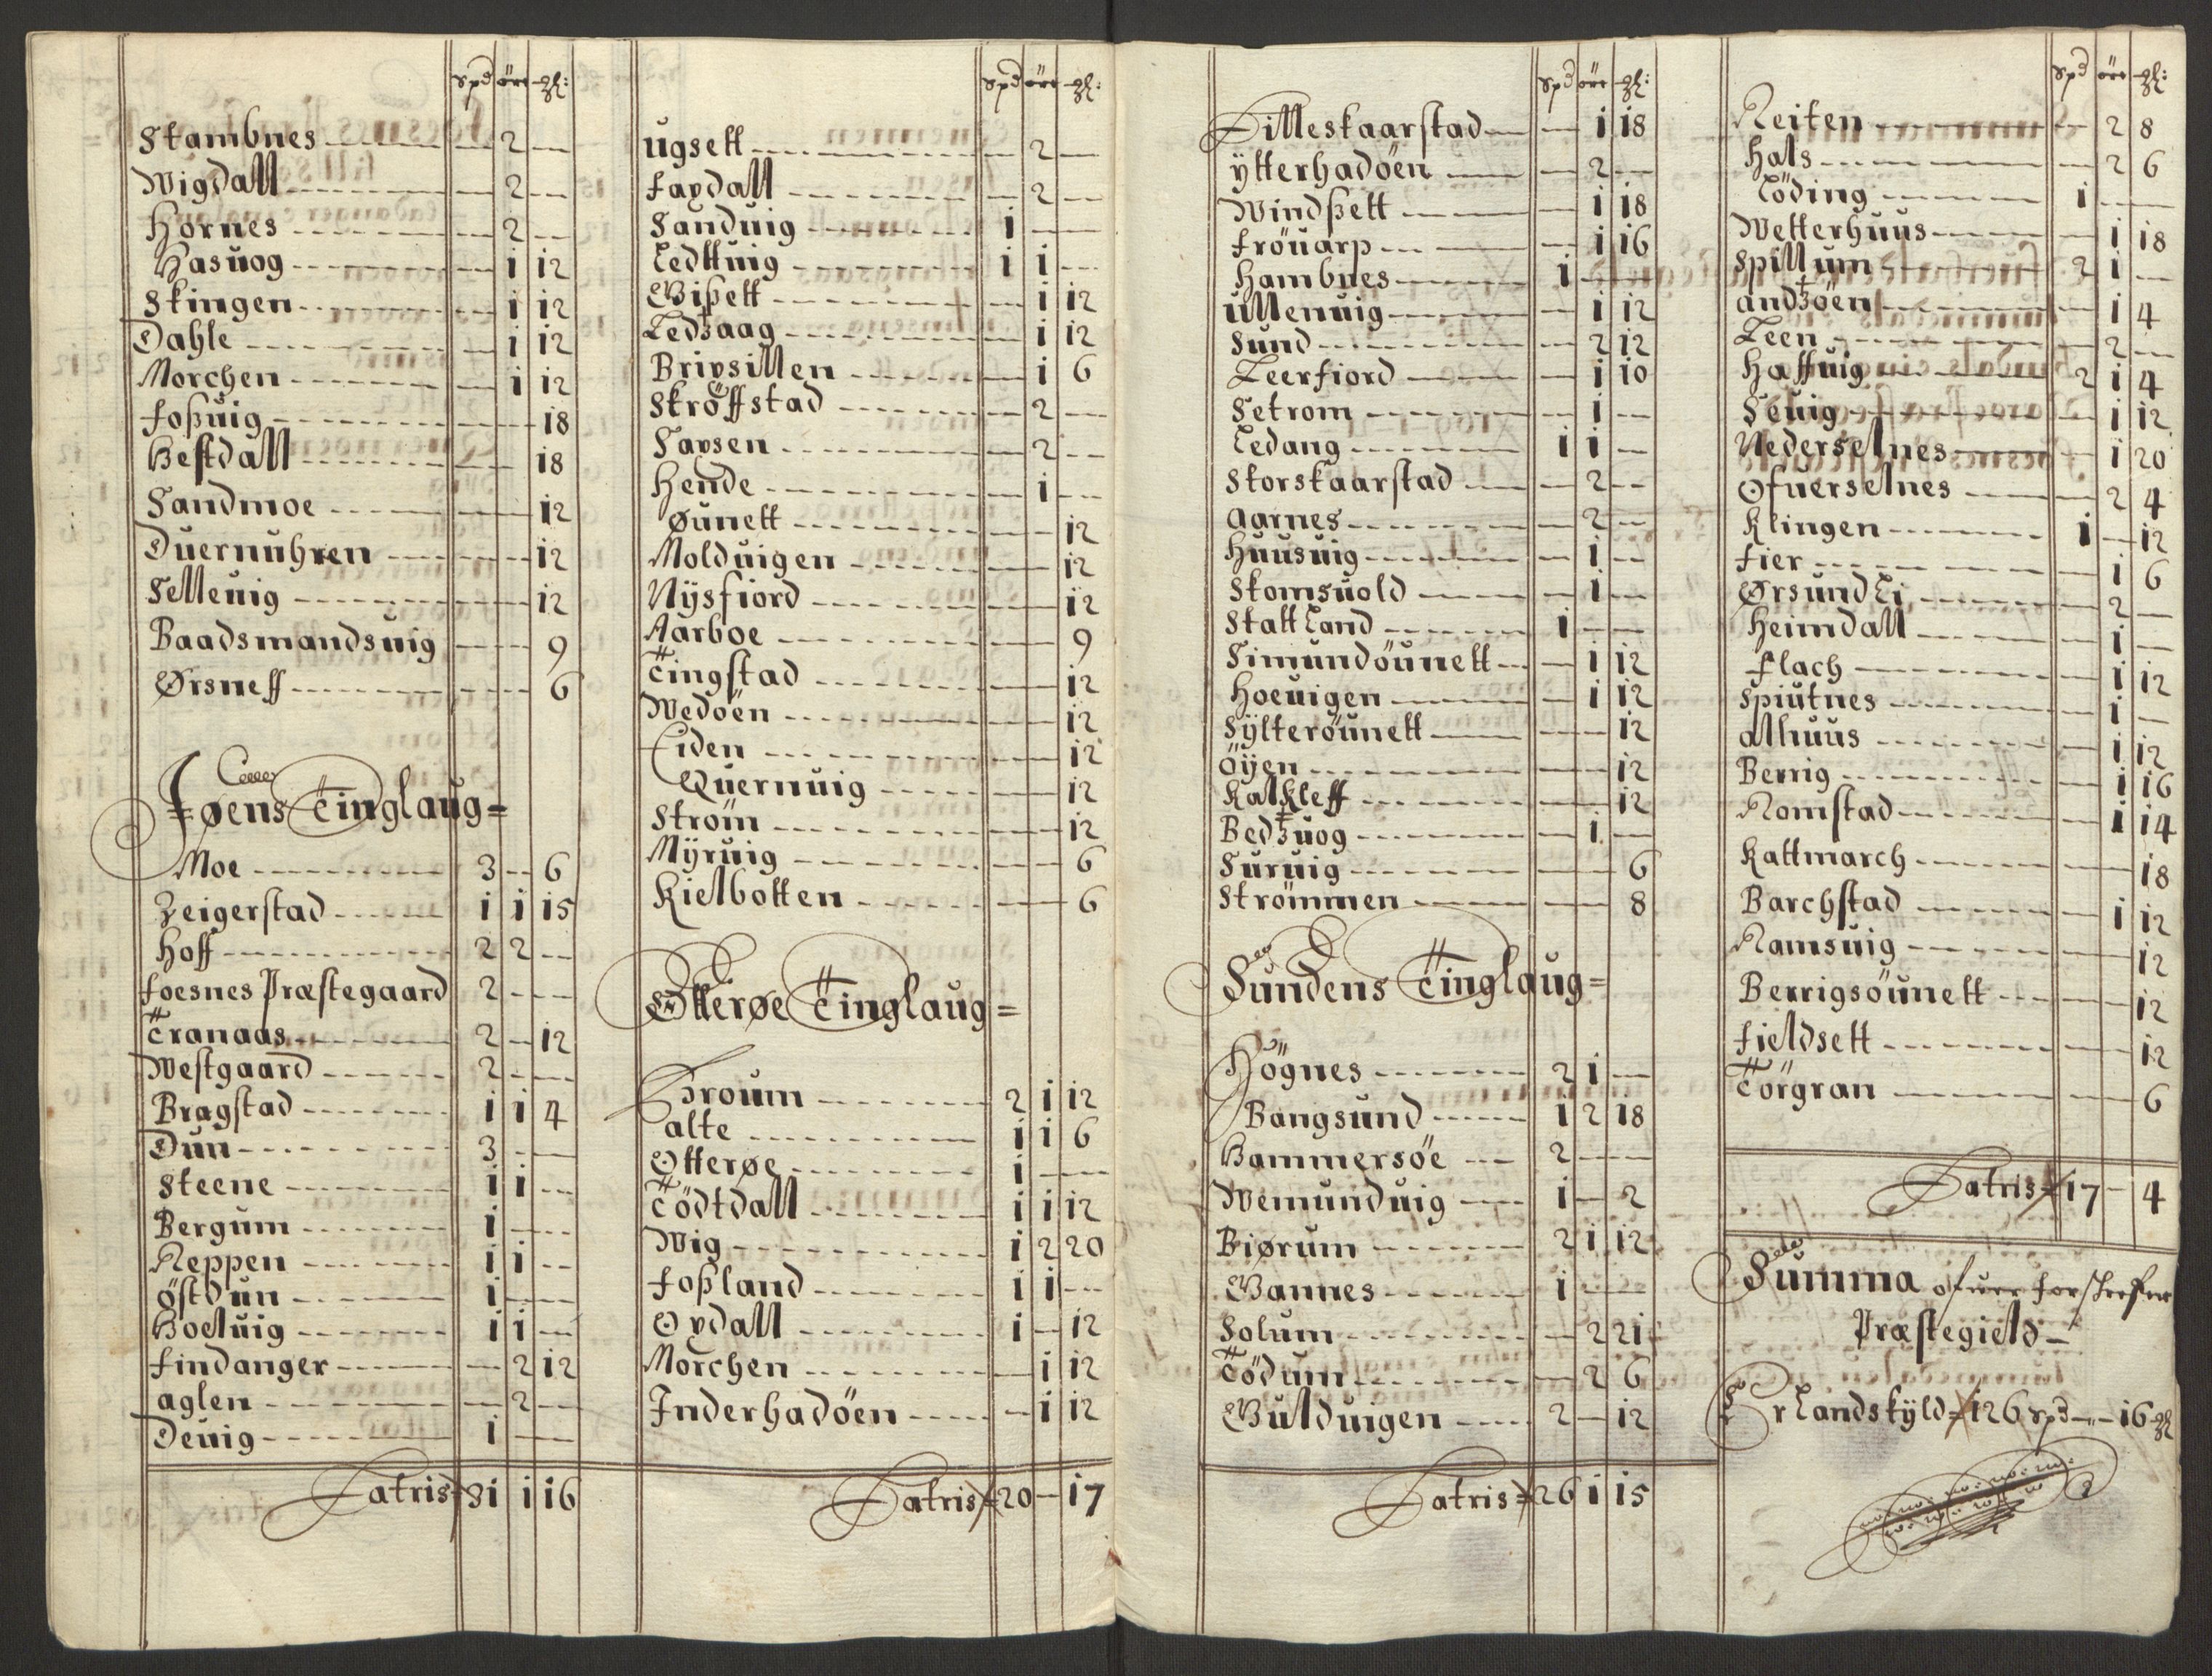 spd öre gl:
Stambnes - 2 -
Wigdall - 2 -
Hornes - 2 -
Hasuog - 1 12
Skingen - 1 12
Dahle - 1 12
Morchen - 1 12
Foßuig - - 18
Bestdall - - 18
Sandmoe - - 12
Duernuhren - - 12
Selleuig - - 12
Baadsmandsuig - - 9
Ørsneff - - 6
Føens Tinglaug =
Moe 3 - 6
Zeigerstad 1 1 15
Hoff 2 2 -
Foesnes Præstegaard 2 - -
Tranaas 2 - 12
Westgaard 2 - -
Bragstad 1 1 4
Dun 3 - -
Steene 1 1 -
Bergum 1 - -
Reppen 1 1 -
östdun 1 - -
Boeluig 1 1 -
Findanger - 2 12
aglen - 2 -
Deuig 1 - -
Latris 31 1 16
spd öre gl:
ugsett - 2 -
Faydall - 2 -
Sanduig 1 - -
Ledtuig 1 1 -
Wißett - 1 12
Ledzaag - 1 12
Brivsillen - 1 6
Ströffstad - 2 -
Savsen - 2 -
Hende - 1 -
øunett - - 12
Molduigen - - 12
Nysfiord - - 12
Aarboe - - 9
Tingstad - - 12
Wedöen - - 12
Eiden - - 12
Quernuig - - 12
Ström - - 12
Myruig - - 6
Kielbotten - - 6
Otterøe Tinglaug =
Hroum 2 1 12
alte 1 1 6
Otterøe 1 - -
Tödtdall 1 1 12
Wig 1 2 20
Foßland 1 1 -
Oydall 1 - 12
Morchen - 1 12
Inderhadöen - 1 12
Latris 20 - 17
spd öre gl:
Lilleskaarstad - 1 18
ytterhadöen - 2 -
Windßett - 1 18
Fröuarp - 1 16
Hambnes 1 - -
ullenuig - 1 12
Sund - 2 12
Leerfiord - 1 10
Setrom - 1 -
Ledang 1 1 -
Storskaarstad - 2 -
aarnes - 2 -
Huusuig - 1 -
Skomsuold - 1 -
Stattland 1 - -
Simundöunett - 1 12
Hoeuigen - 1 12
Sylteröunett - - 12
öyen - - 12
Kalkleff - - 12
Bedzuog - 1 -
Suruig - - 6
Strömmen - - 8
Sundens Tinglaug =
Högnes 2 1 -
Bangsund 1 2 18
Bammersöe 2 - -
Wemunduig 1 - 2
Biørum 2 1 12
Wannes 1 - -
Solum - 2 21
Tödum - 2 6
Bulduigen 2 - 12
Latris = 26 1 15
spd öre gl:
Reiten - 2 8
Hals - 2 6
Löding 1 - -
Wetterhuus - 1 18
Spillum 2 1 -
andzöen - 1 4
Leen - 2 -
Haffuig 2 1 4
Seuig - 1 12
Nederselnes - 1 20
Ofuerselnes - 2 4
Klingen 1 - 12
Fier - 1 6
Ørsundli - 2 -
Heimdall - 1 -
Flach - 1 12
Spiutnes - 1 -
alhuus - 1 12
Berrig - 1 16
Romstad - 1 14
Kattmarch - - 18
Barchstad - 1 12
Ramsuig - - 12
Berrigsöunett - - 12
Fieldsett - - 12
Törgran - - 6
Latris 17 - 4
Summa ofuer forschrefne
Præstegield -
Er Landskyld = 126 spd - 16 gl